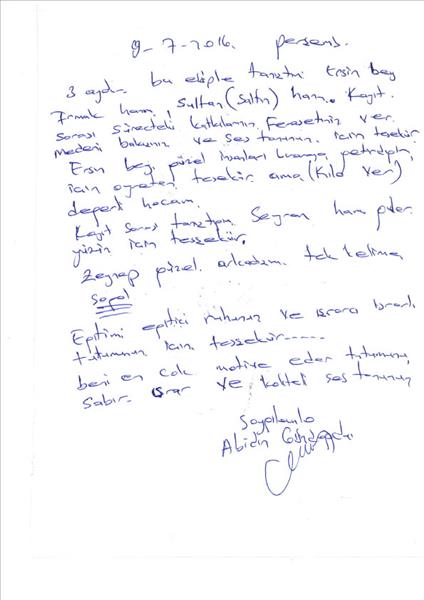 9-7-2016. perşembe.
3 aydır bu ekiple tanıştım Ersin bey
Irmak hanım, Sultan (Saltın) hanım. Kayıt.
sorası süreçteki katkılarınız, Ferasetiniz ver.
medeni bakışınız ve ses tonunuz için teşekür
Ersin bey güzel insanları buraya getirdiğin
için ayrıca teşekür ama (kilo ver)
değerli hocam.
Kayıt sorası tanıştığım Seyran hanım güler
yüzün için teşşekür.
Zeynep güzel arkadaşım tek kelime
Sağol
Eğitimi eğitici ruhunuz ve ısrarlı
tutumunuz için teşşekür-----
beni en çok motive eden tutumunuz
Sabır. ısrar ve kaliteli ses tonunuz
Saygılarımla
Abidin